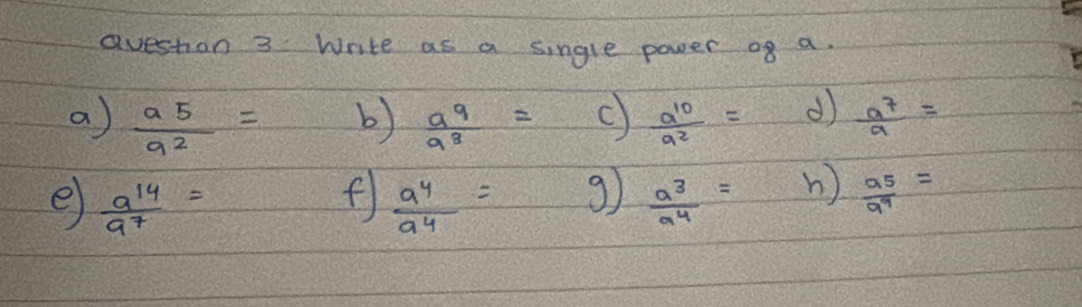 Question 3: Write as a single power of a.
a) a^5/a^2 = b) a^9/a^3 = c) a^10/a^2 = d) a^7/a =
e) a^14/a^7 = f) a^4/a^4 = g) a^3/a^4 = h) a^5/a^9 =